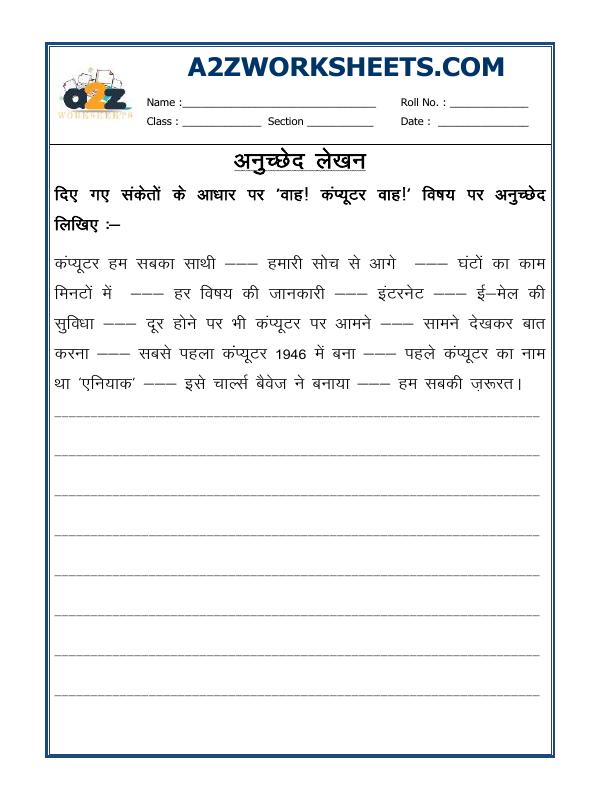 A2ZWORKSHEETS.COM
a2z
WORKSHEETS
Name :______________________________ Roll No. : ____________
Class : ____________ Section __________ Date : ______________
अनुच्छेद लेखन
दिए गए संकेतों के आधार पर ‘वाह! कंप्यूटर वाह!‘ विषय पर अनुच्छेद
लिखिए :–
कंप्यूटर हम सबका साथी ––– हमारी सोच से आगे ––– घंटों का काम
मिनटों में ––– हर विषय की जानकारी ––– इंटरनेट ––– ई–मेल की
सुविधा ––– दूर होने पर भी कंप्यूटर पर आमने ––– सामने देखकर बात
करना ––– सबसे पहला कंप्यूटर 1946 में बना ––– पहले कंप्यूटर का नाम
था ‘एनियाक‘ ––– इसे चार्ल्स बैवेज ने बनाया ––– हम सबकी ज़रूरत।